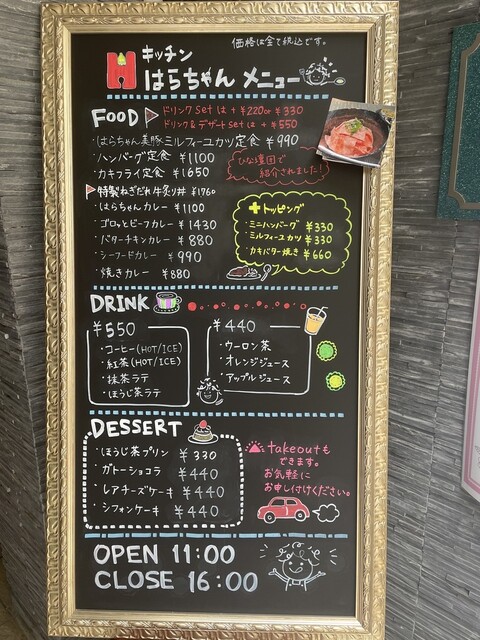 価格は全て税込です。
キッチン
はらちゃん メニュー
FOOD
ドリンク set は +¥220 or ¥330
ドリンク&デザート set は +¥550
・はらちゃん美豚ミルフィーユカツ定食 ¥990
・ハンバーグ定食 ¥1100
・カキフライ定食 ¥1650
ひな壇団で
紹介されました!
特製ねぎだれ牛炙り丼 ¥1760
・はらちゃんカレー ¥1100
・ゴロッとビーフカレー ¥1430
・バターチキンカレー ¥880
・シーフードカレー ¥990
・焼きカレー ¥880
+トッピング
・ミニハンバーグ ¥330
・ミルフィーユカツ ¥330
・カキバター焼き ¥660
DRINK
¥550
・コーヒー(HOT/ICE)
・紅茶(HOT/ICE)
・抹茶ラテ
・ほうじ茶ラテ
¥440
・ウーロン茶
・オレンジジュース
・アップルジュース
DESSERT
・ほうじ茶プリン ¥330
・ガトーショコラ ¥440
・レアチーズケーキ ¥440
・シフォンケーキ ¥440
takeoutも
できます。
お気軽に
お申し付けください。
OPEN 11:00
CLOSE 16:00